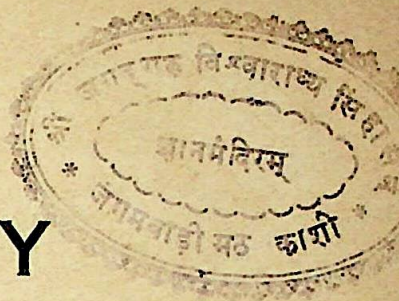 श्री जगद्गुरु विश्वाराध्य सिंहा
ज्ञानमंदिरम्
* जंगमवाड़ी मठ काशी *
Y